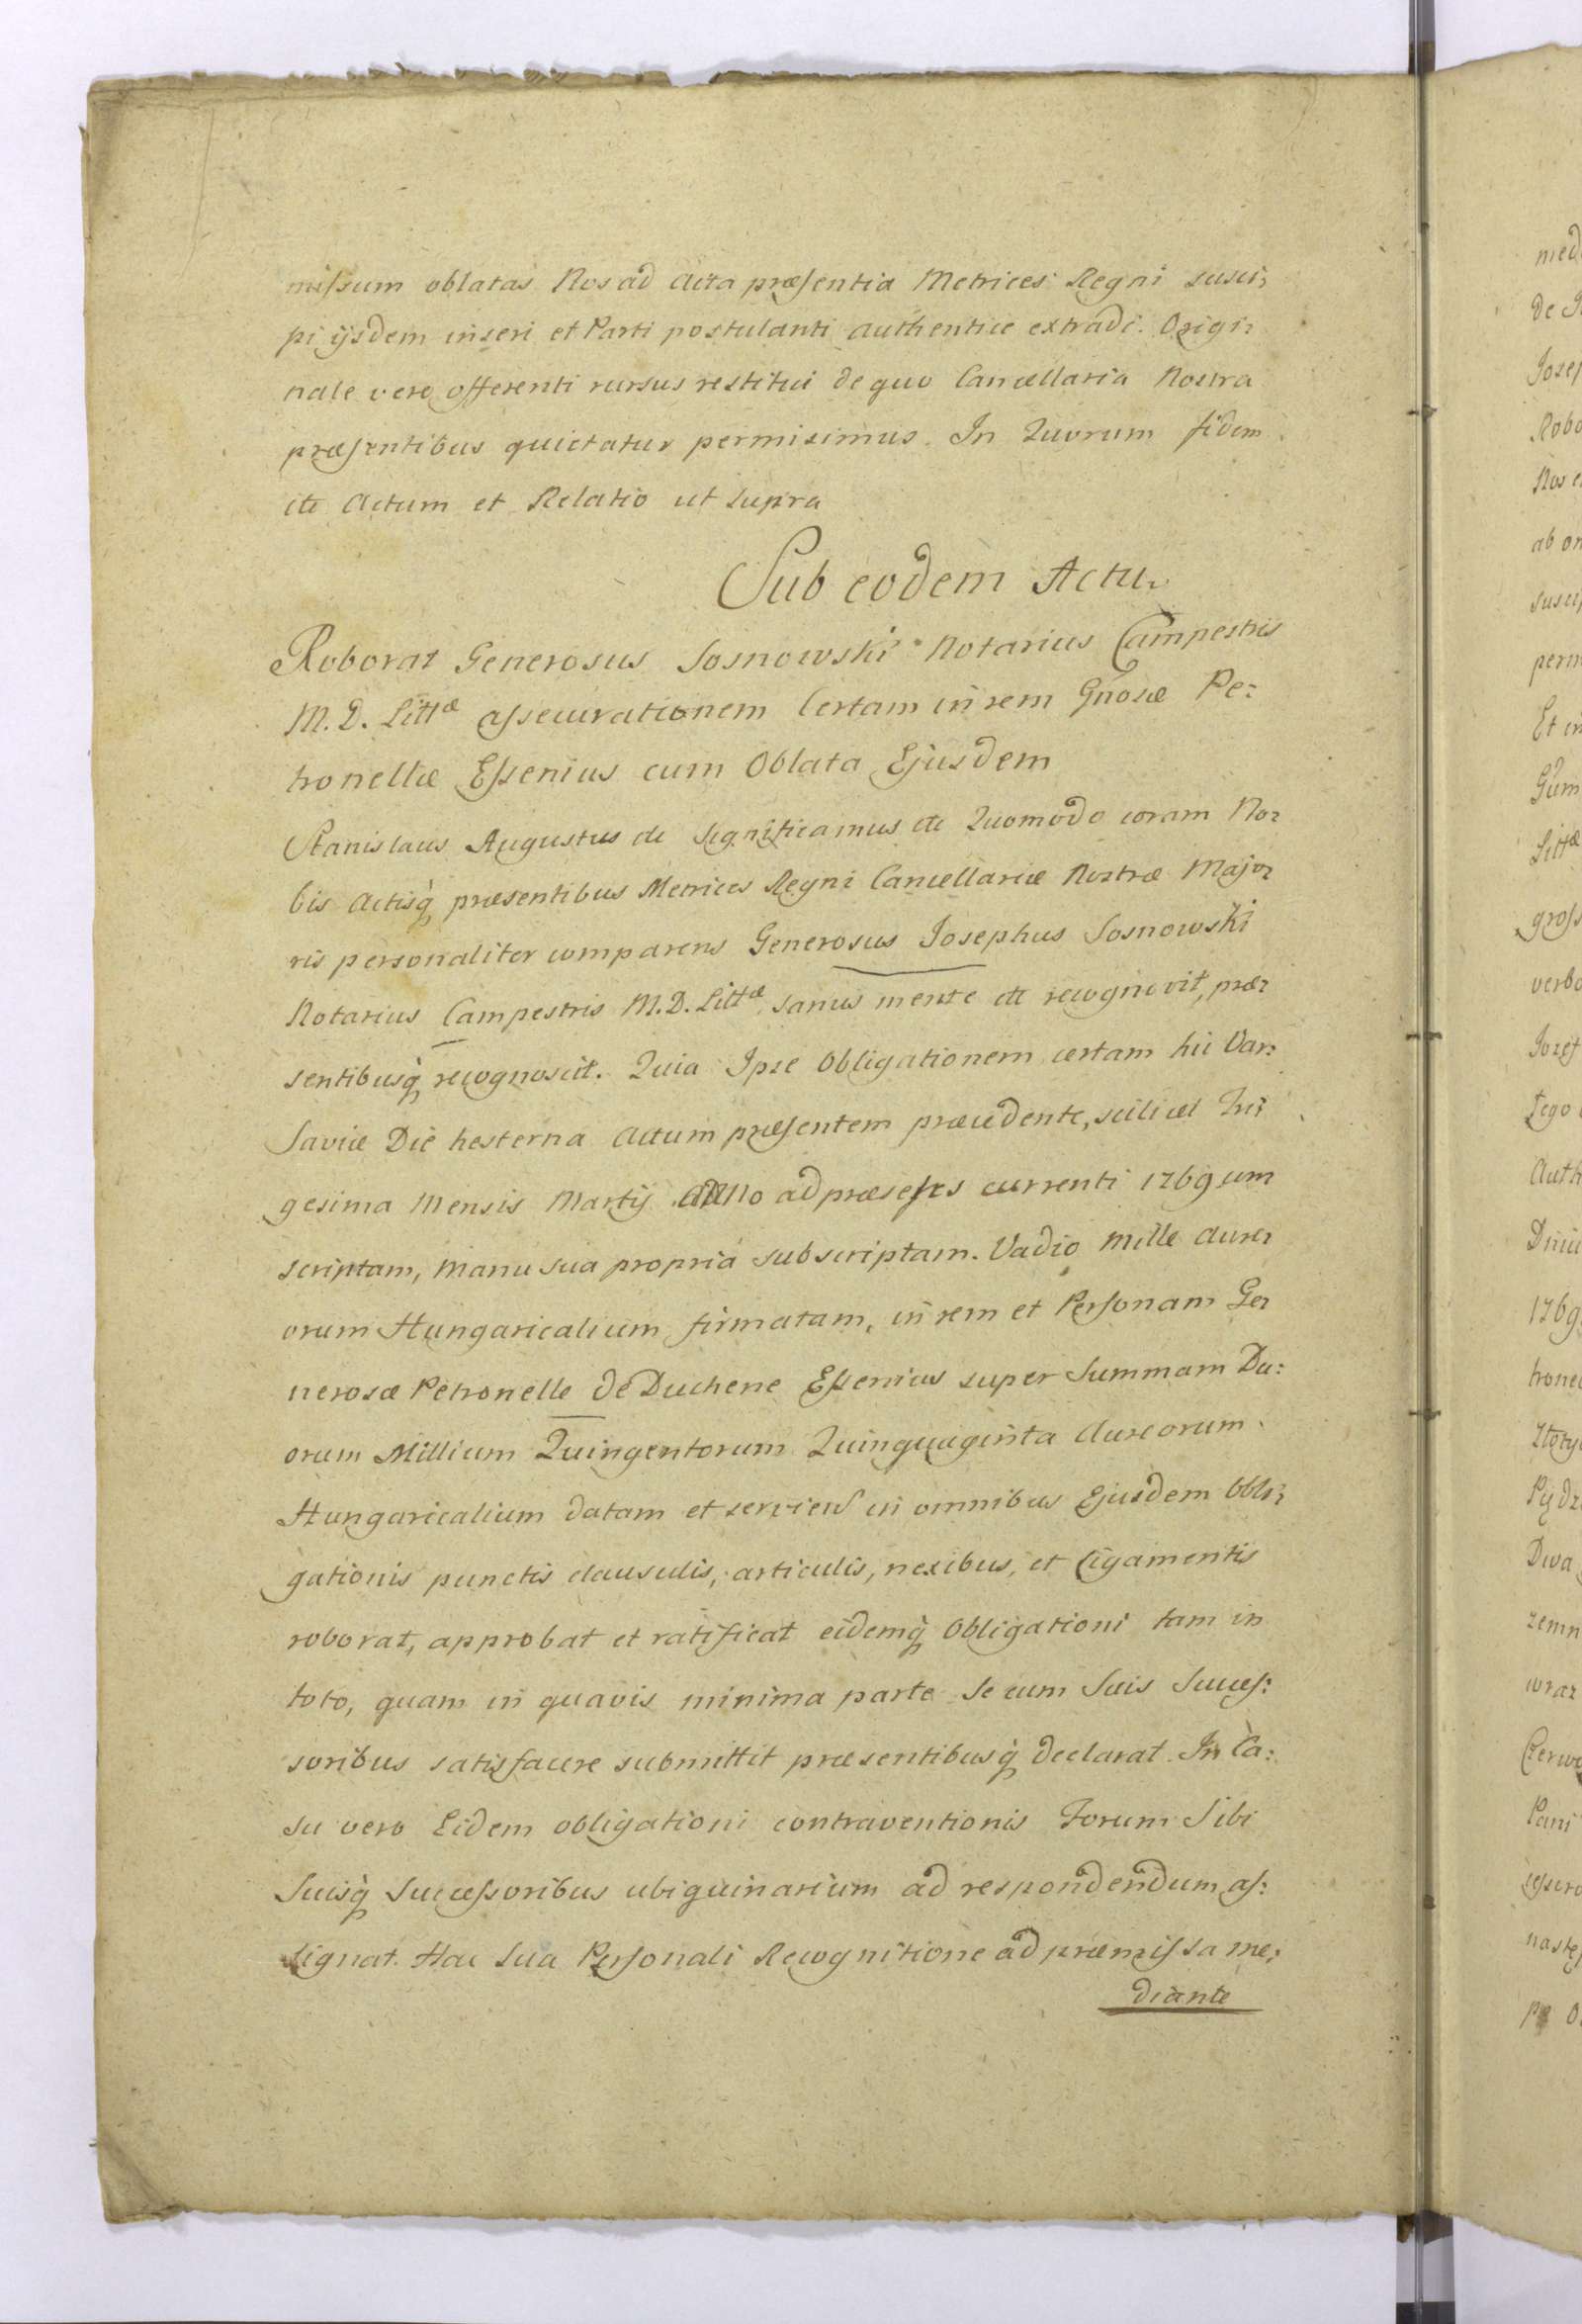 missum oblatas Nos ad Acta præsentia Metrices Regni susci-
pi ijsdem inseri et Parti postulanti authentice extradi. Origi-
nale vero offerenti rursus restitui de quo Cancellaria Nostra
præsentibus quietatur permisimus. In Quorum fidem
etc Actum et Relatio ut supra
Sub eodem Actu.
Roborat Generosus Sosnowski Notarius Campestris
M. D. Littæ assecurationem Certam in rem Gnosæ Pe:
tronellæ Essenius cum Oblata Ejusdem
Stanislaus Augustus etc Significamus etc Quomodo coram No-
bis Actisq̀ præsentibus Metrices Regni Cancellariæ Nostræ Majo-
ris personaliter comparens Generosus Josephus Sosnowski
Notarius Campestris M.D. Littæ, sanus mente etc recognovit, præ-
sentibusq̀ recognoscit. Quia Ipse Obligationem certam hic Var:
saviæ Die hesterna Actum præsentem præcedente, scilicet Tri-
gesima Mensis Martij Anno ad præsens currenti 1769um
scriptam, Manu sua propria subscriptam. Vadio Mille Aure-
orum Hungaricalium firmatam, in rem et Personam Ge-
nerosæ Petronelle de Duchene Essenius super Summam Du:
orum Millium Quingentorum Quinquaginta Aureorum
Hungaricalium datam et serviens in omnibus Ejusdem Obli-
gationis punctis clausulis, articulis, nexibus, et ligamentis
roborat, approbat et ratificat eidemq̀ Obligationi tam in
toto, quam in quavis minima parte Se cum Suis Succes:
soribus satisfacere submittit præsentibusq̀ declarat. In Ca:
su vero Eidem obligationi contraventionis Forum Sibi
Suisq̀ Successoribus ubiquinarium ad respondendum as:
signat. Hac Sua Personali Recognitione ad præmissa me-
diante